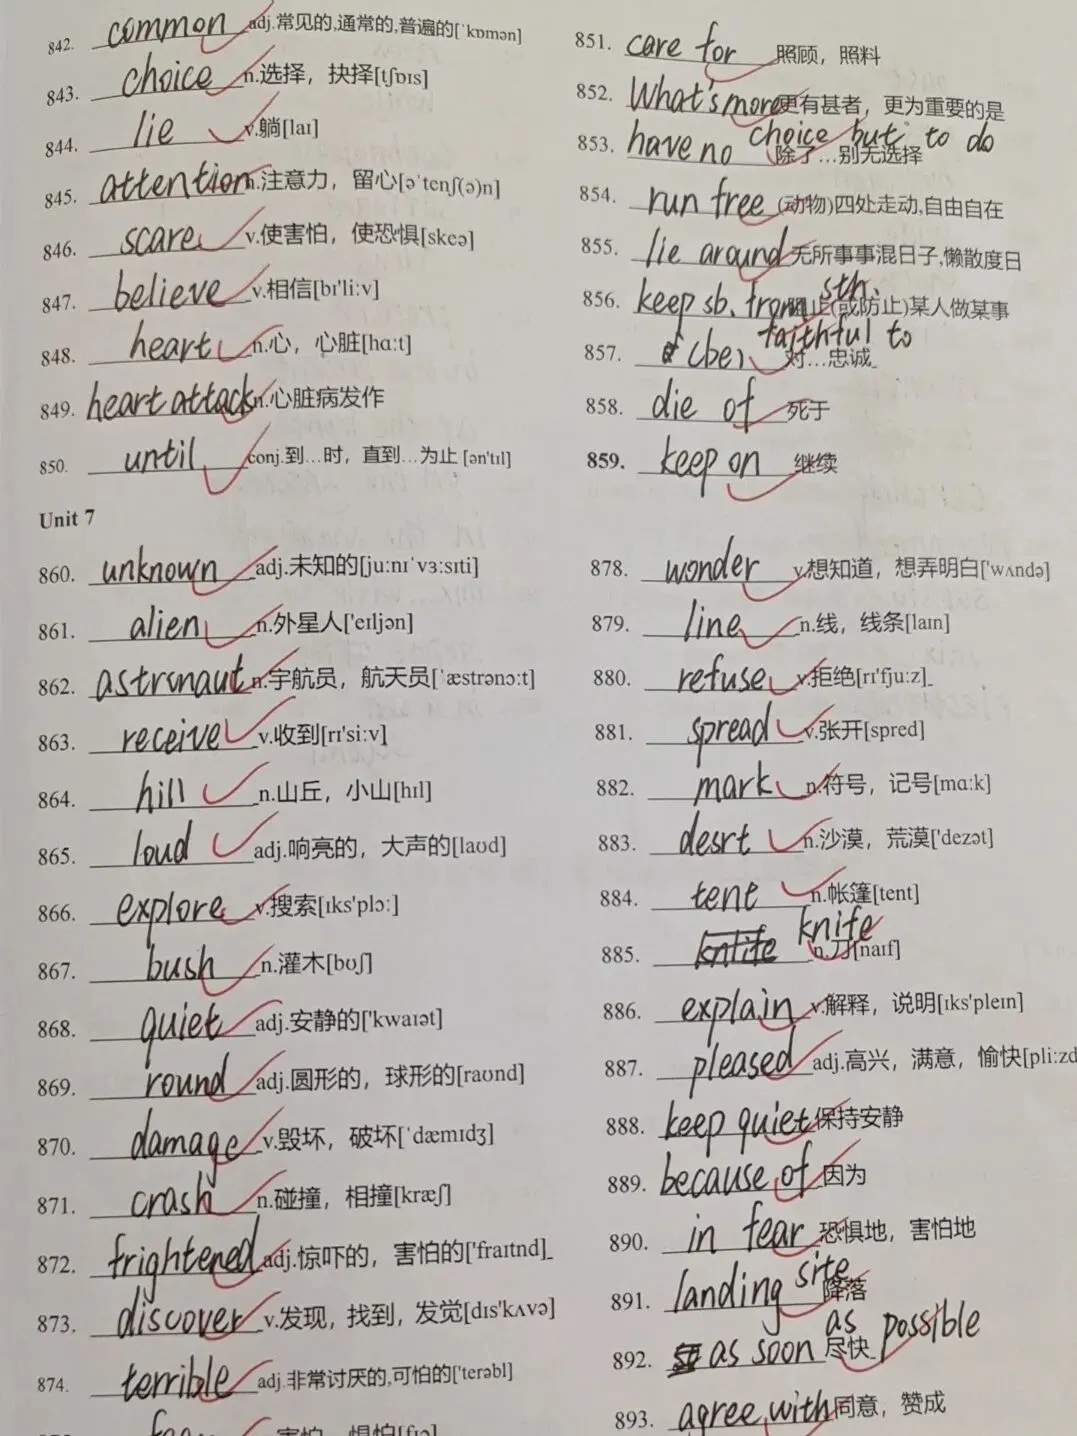 842. common adj.常见的,通常的,普遍的[ˈkɒmən]
843. choice n.选择，抉择[tʃɒɪs]
844. lie v.躺[laɪ]
845. attention n.注意力，留心[əˈtenʃ(ə)n]
846. scare v.使害怕，使恐惧[skeə]
847. believe v.相信[bɪ'li:v]
848. heart n.心，心脏[hɑ:t]
849. heart attack n.心脏病发作
850. until conj.到…时，直到…为止 [ən'tɪl]
851. care for 照顾，照料
852. What's more 更有甚者，更为重要的是
853. have no choice but to do 除了…别无选择
854. run free (动物)四处走动,自由自在
855. lie around 无所事事混日子,懒散度日
856. keep sb. from sth. 阻止(或防止)某人做某事
857. (be) faithful to 对…忠诚
858. die of 死于
859. keep on 继续
Unit 7
860. unknown adj.未知的[ju:nɪˈvɜ:sɪti]
861. alien n.外星人['eɪljən]
862. astronaut n.宇航员，航天员[ˈæstrənɔ:t]
863. receive v.收到[rɪ'si:v]
864. hill n.山丘，小山[hɪl]
865. loud adj.响亮的，大声的[laʊd]
866. explore v.搜索[ɪks'plɔ:]
867. bush n.灌木[bʊʃ]
868. quiet adj.安静的['kwaɪət]
869. round adj.圆形的，球形的[raʊnd]
870. damage v.毁坏，破坏[ˈdæmɪdʒ]
871. crash n.碰撞，相撞[kræʃ]
872. frightened adj.惊吓的，害怕的['fraɪtnd]
873. discover v.发现，找到，发觉[dɪs'kʌvə]
874. terrible adj.非常讨厌的,可怕的['terəbl]
害怕，惧怕[fɪə]
878. wonder v.想知道，想弄明白['wʌndə]
879. line n.线，线条[laɪn]
880. refuse v.拒绝[rɪ'fju:z]
881. spread v.张开[spred]
882. mark n.符号，记号[mɑ:k]
883. desrt n.沙漠，荒漠['dezət]
884. tent n.帐篷[tent]
885. knife n.刀[naɪf]
886. explain v.解释，说明[ɪks'pleɪn]
887. pleased adj.高兴，满意，愉快[pli:zd
888. keep quiet 保持安静
889. because of 因为
890. in fear 恐惧地，害怕地
891. landing site 降落
892. as soon as possible 尽快
893. agree with 同意，赞成